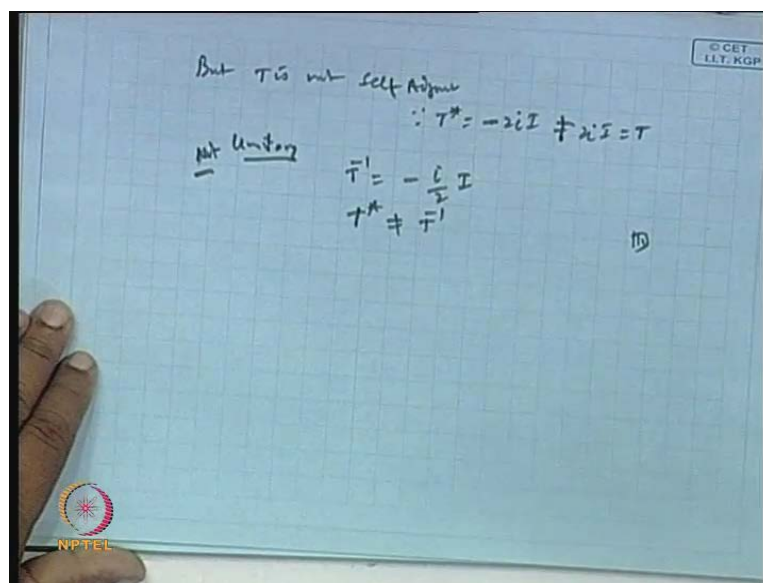 © CET
I.I.T. KGP
But T is not Self Adjoint
∵ T* = -2iI ≠ 2iI = T
Not Unitary
T⁻¹ = - i/2 I
T* ≠ T⁻¹
NPTEL